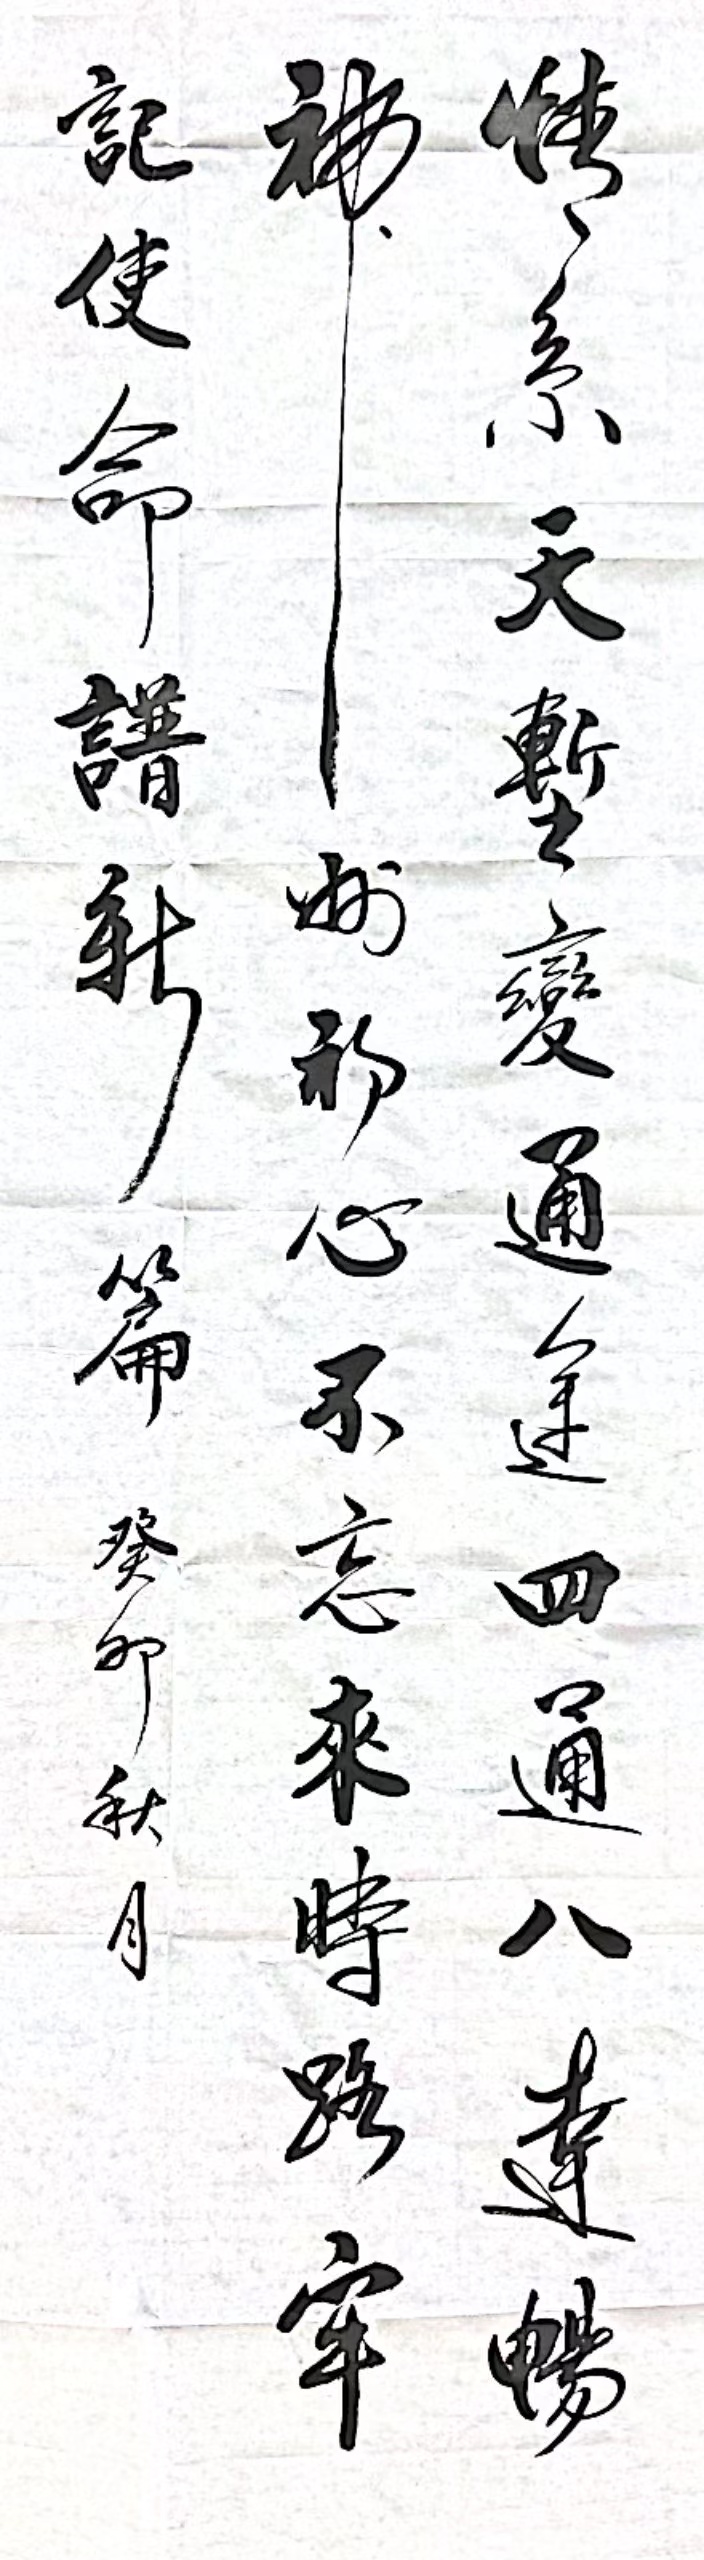 情系天塹變通途四通八達暢
神州初心不忘來時路牢
記使命譜新篇 癸卯秋月